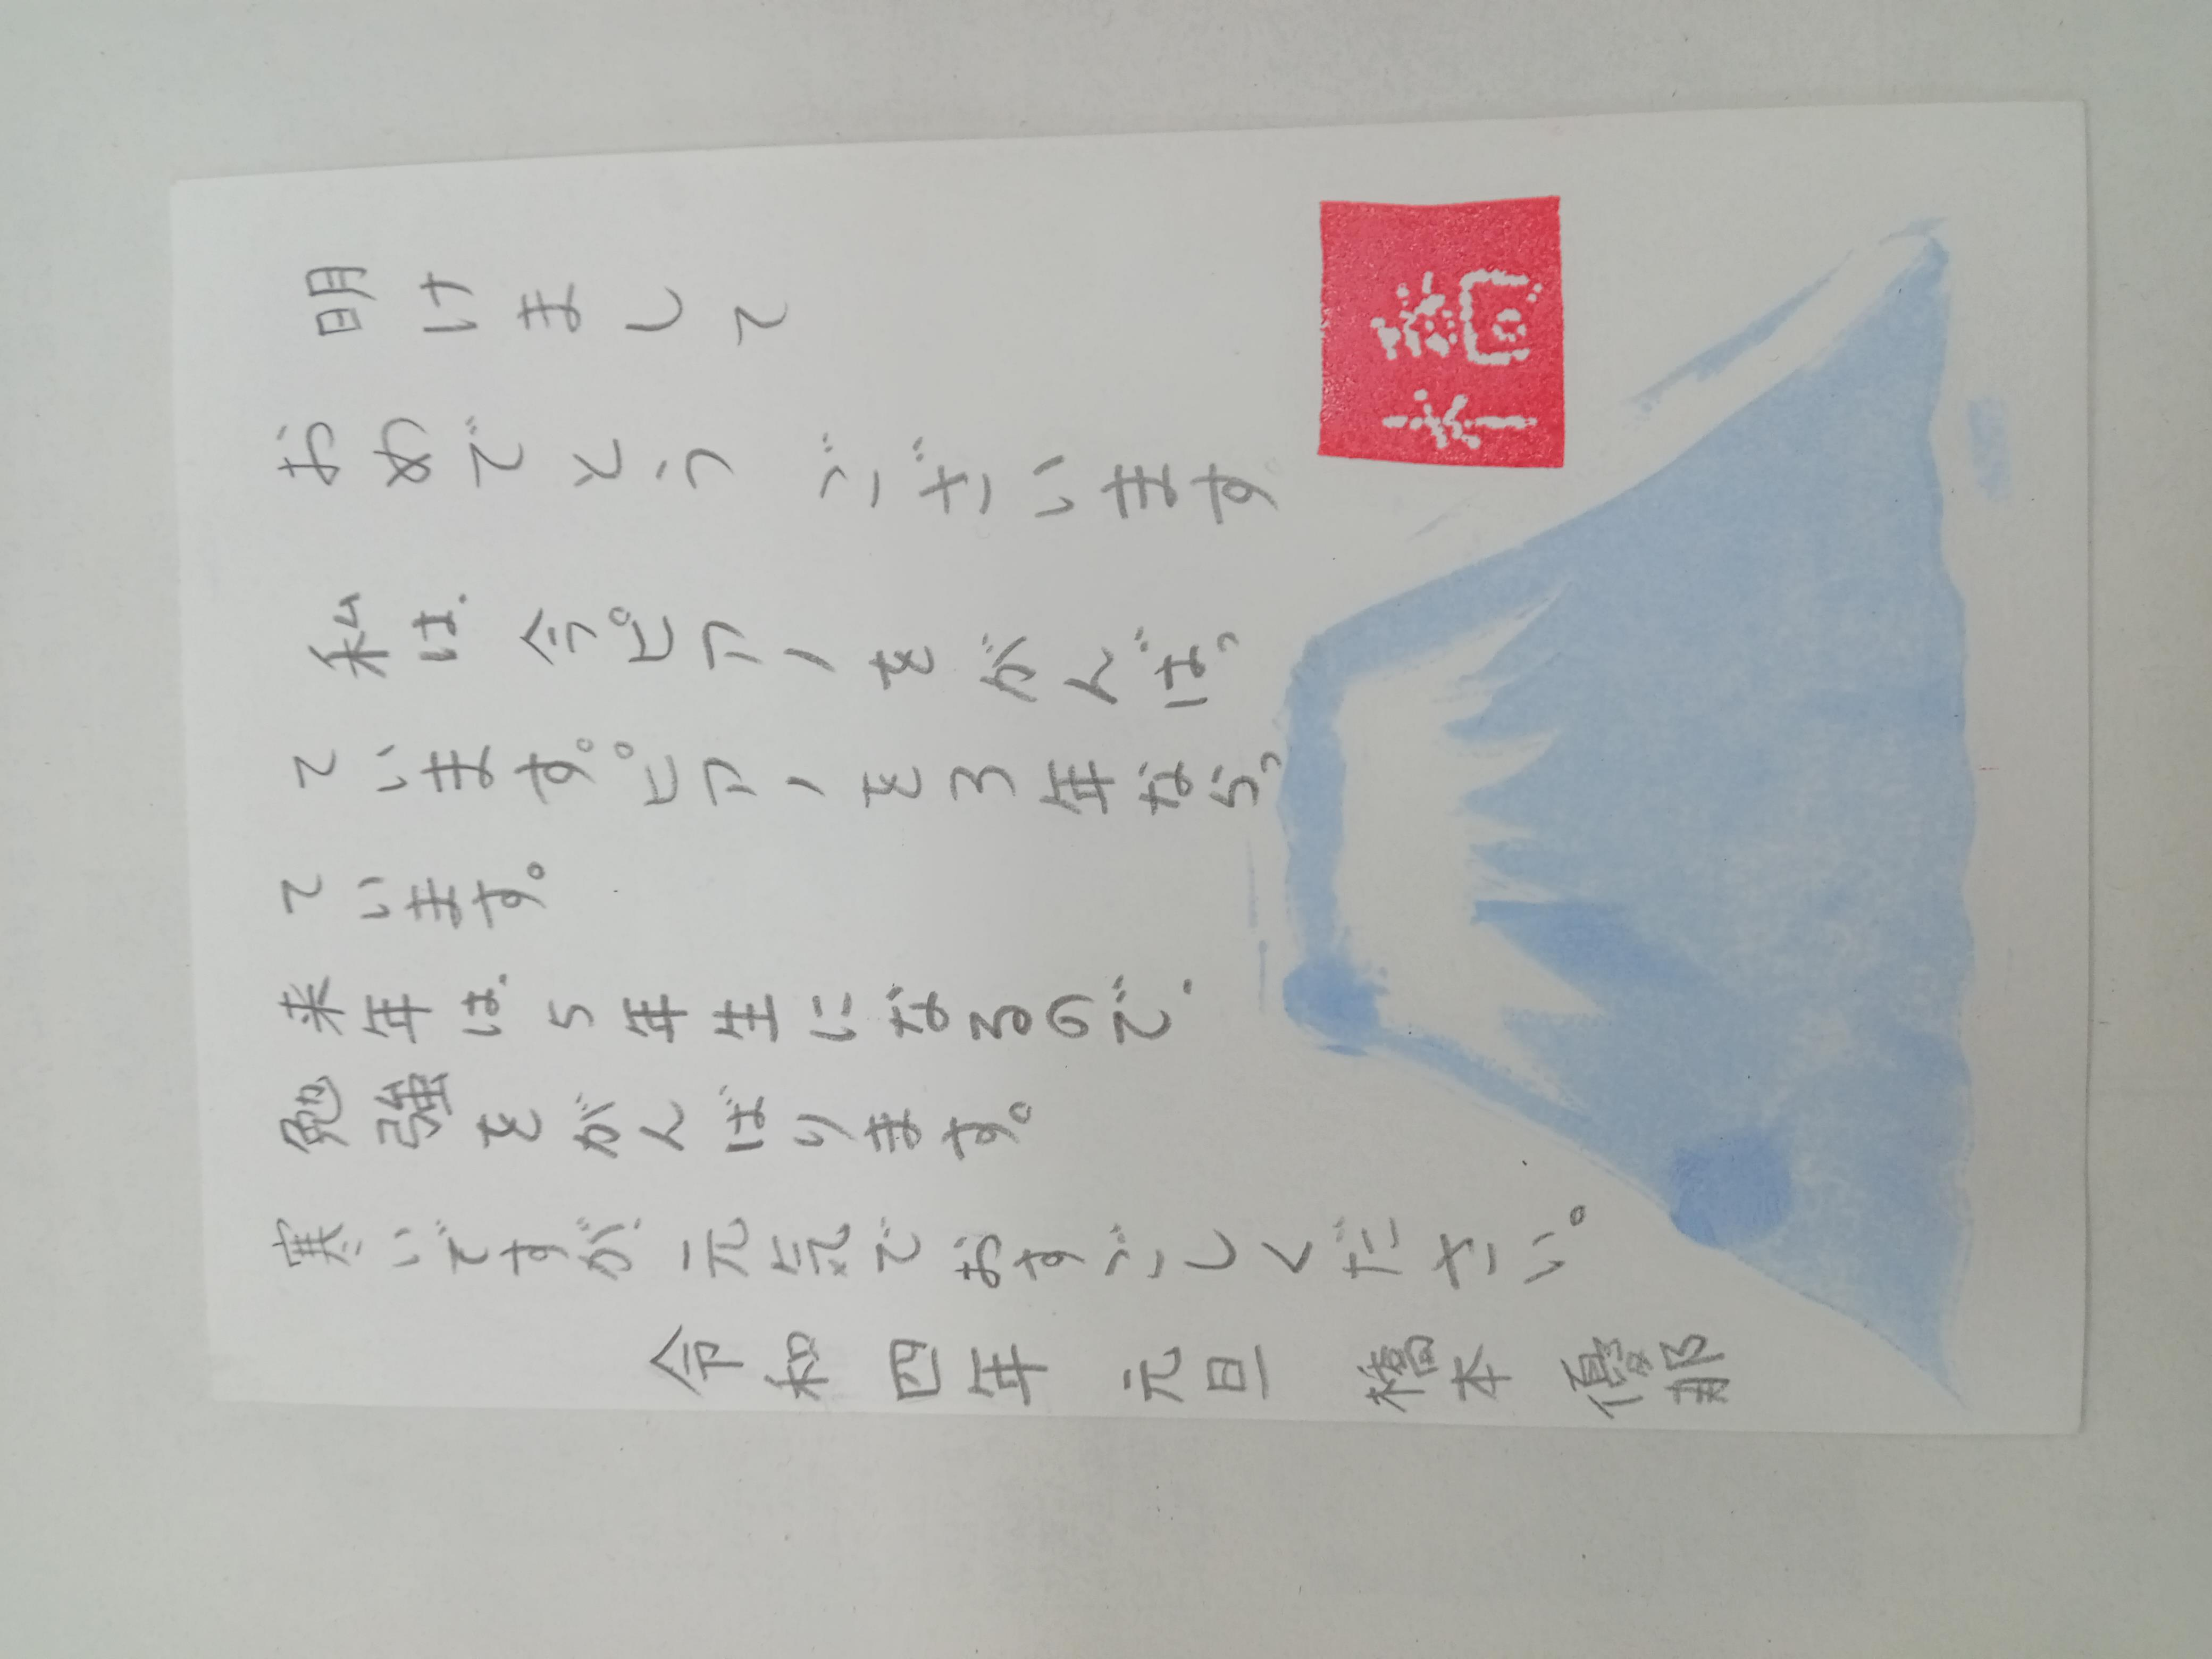 明けまして
おめでとうございます
私は、今ピアノをがんばっ
ています。ピアノを3年ならっ
ています。
来年は、5年生になるので、
勉強をがんばります。
寒いですが、元気でおすごしください。
令和四年 元旦 橋本 優那
橋本